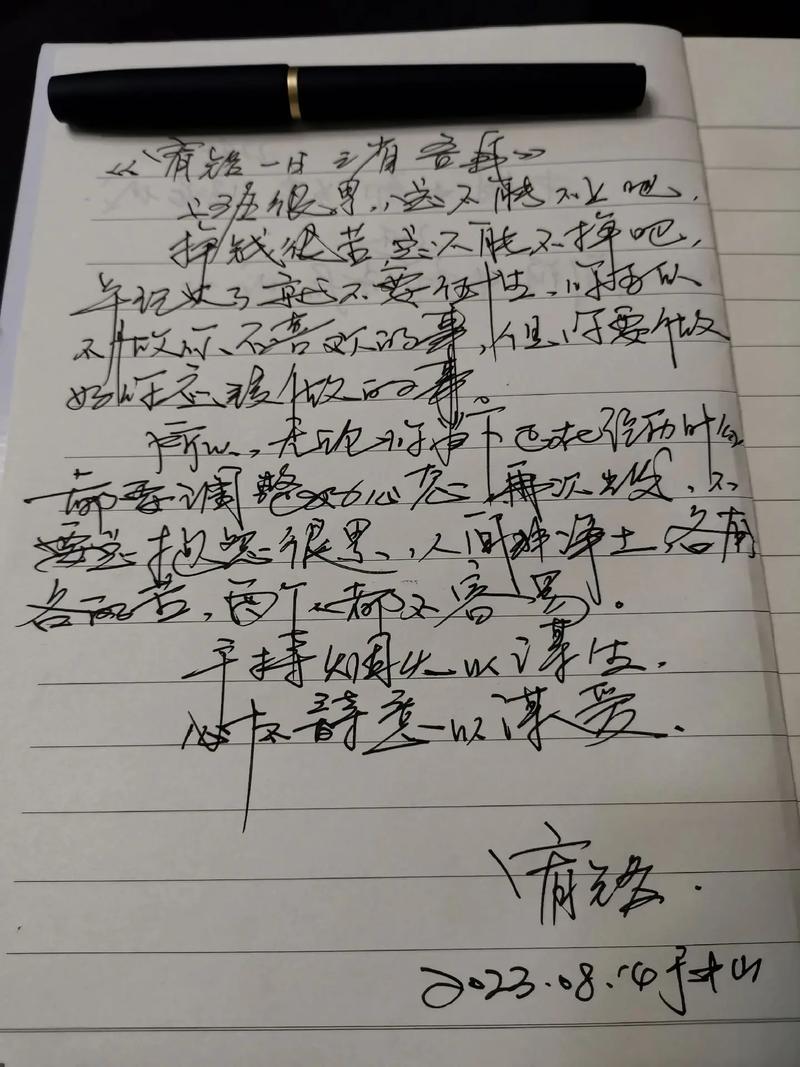 一日三省吾
上班很累,总不能不上吧,
挣钱很苦,总不能不挣吧,
年纪大了就不要任性,你可以
不做你不喜欢的事,但你要做
好你应该做的事。
所以,无论你当下正在经历什么
都要调整心态,再次出发,不
要总抱怨很累,人间非净土,各有
各的苦,每个人都不容易。
手持烟火以谋生,
心怀诗意以谋爱。
2023.08.14于